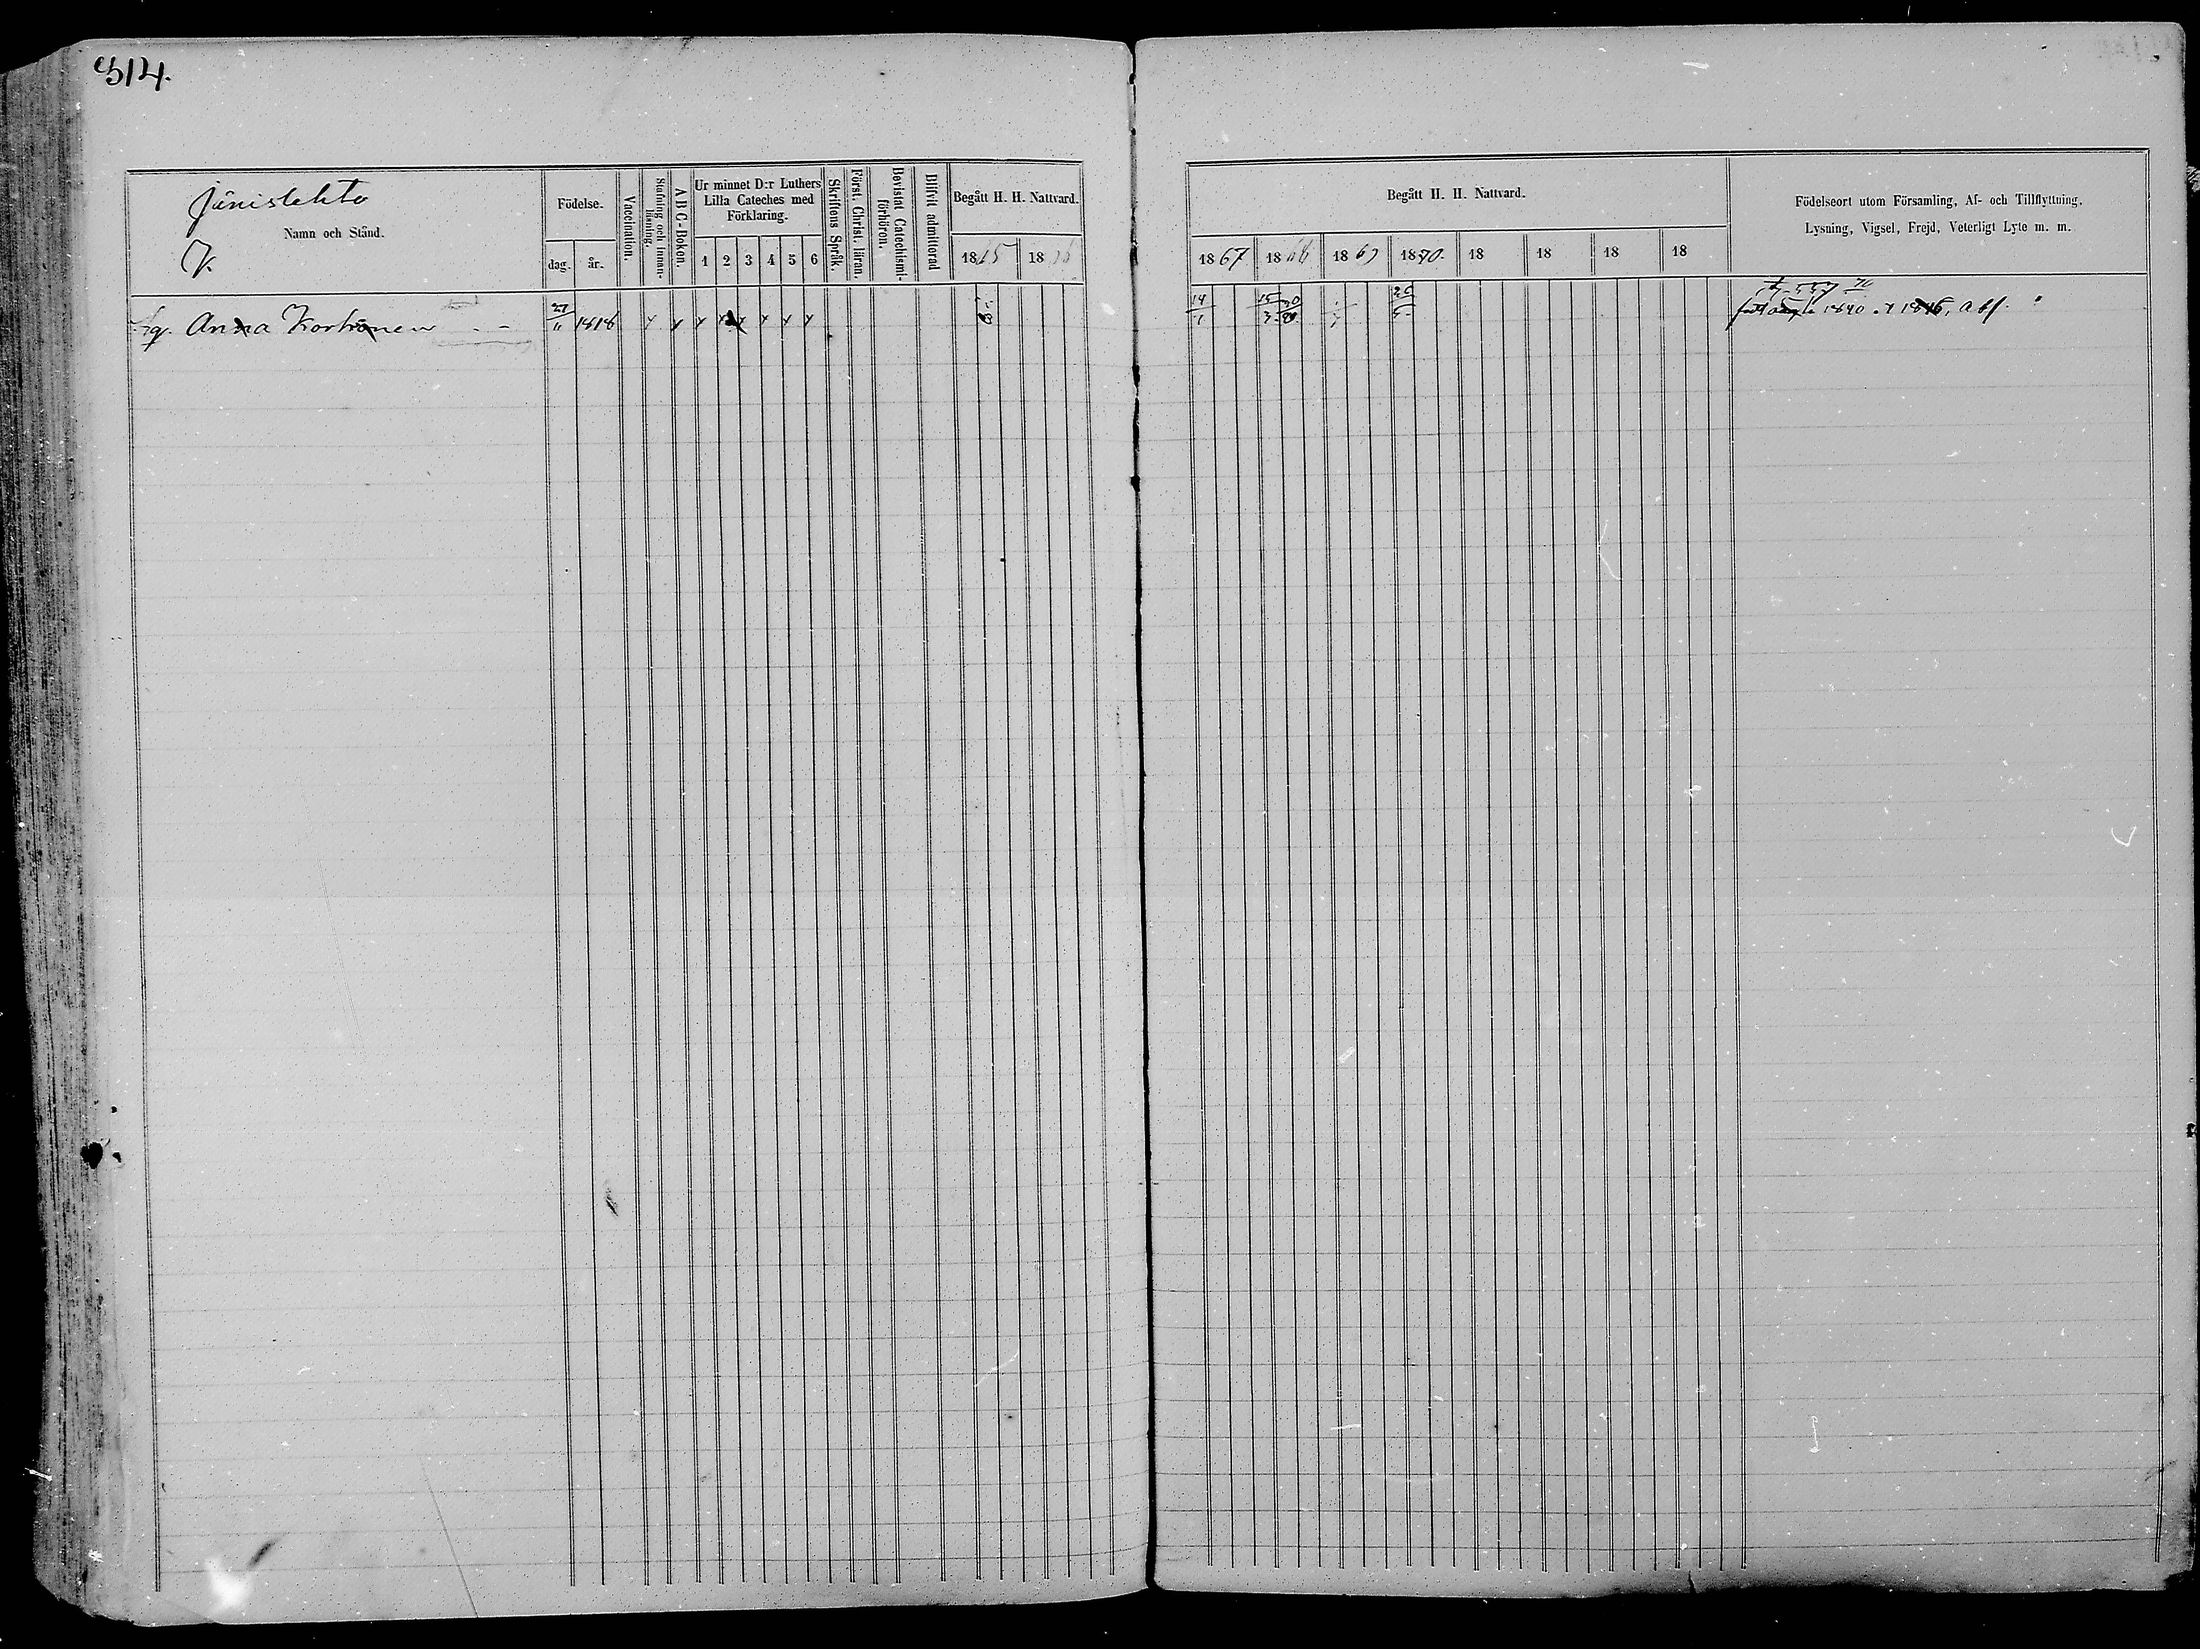 314.
Jänislehto
Namn och Stånd.
V.
Födelse.
dag. år.
Vaccination.
Stafning och Innanläsning.
A B C-Boken.
Ur minnet D:r Luthers
Lilla Cateches med
Förklaring.
1 2 3 4 5 6
Skriftens Språk.
Först. Christ. läran.
Bevistat Catechismiförhören.
Blifvit admitterad
Begått H. H. Nattvard.
1865 18
Begått H. H. Nattvard.
1867 1868 1869 1870. 18 18 18 18
Födelseort utom Församling, Af- och Tillflyttning,
Lysning, Vigsel, Frejd, Veterligt Lyte m. m.
Anna Kortonen 1818 abs.